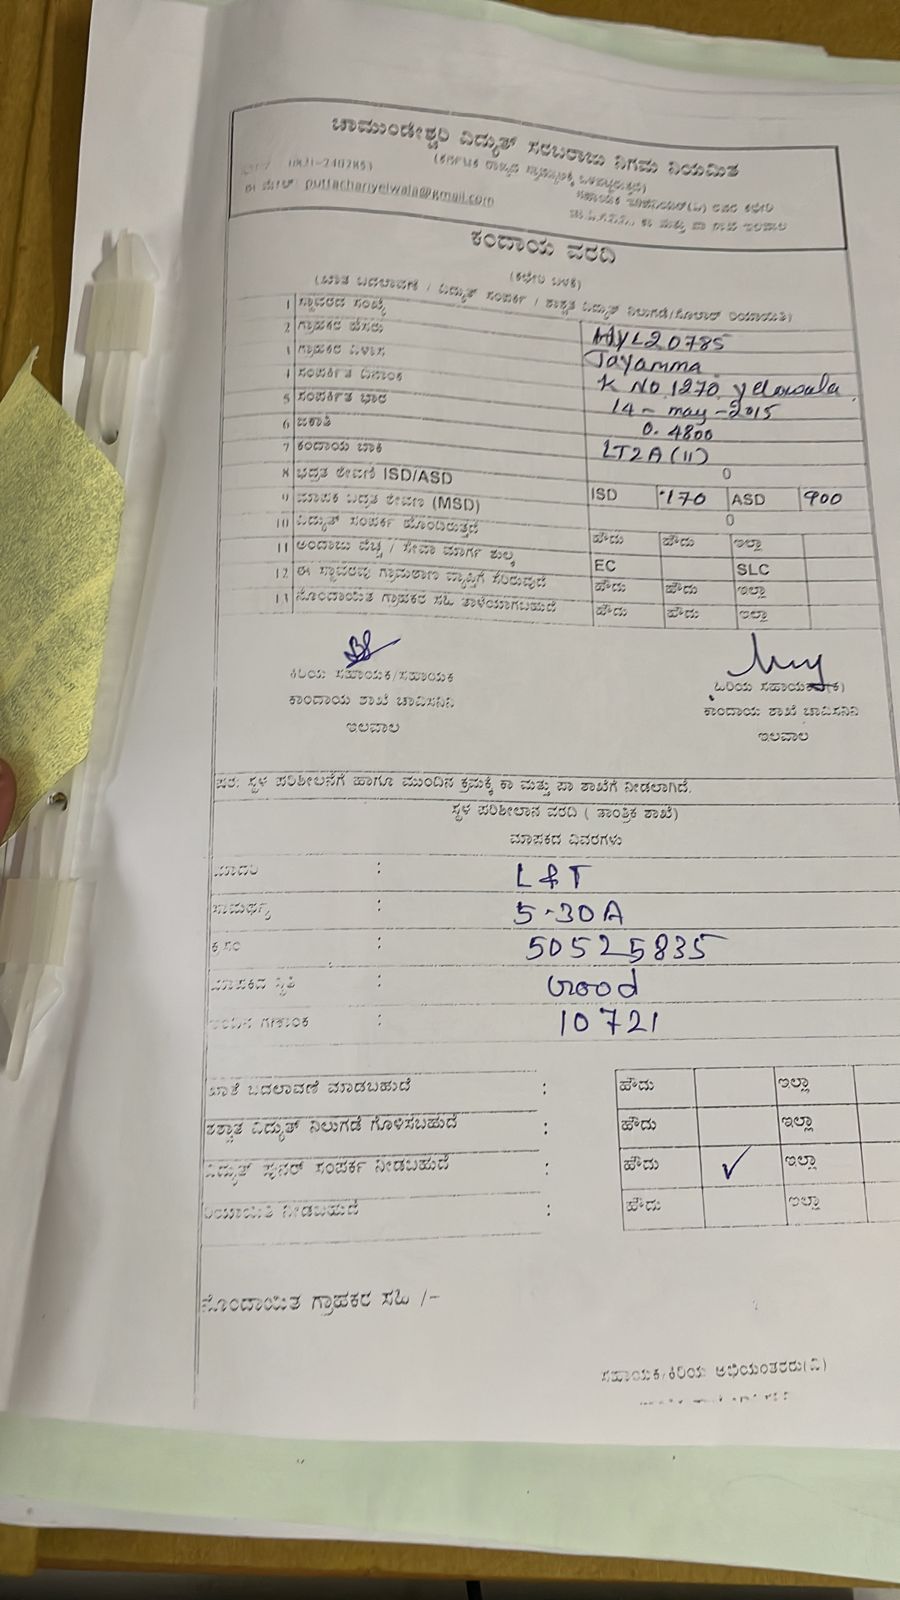 ಚಾಮುಂಡೇಶ್ವರಿ ವಿದ್ಯುತ್ ಸರಬರಾಜು ನಿಗಮ ನಿಯಮಿತ
0821-2402853
(ಕರ್ನಾಟಕ ರಾಜ್ಯದ ಸ್ವಾಮ್ಯಕ್ಕೆ ಒಳಪಟ್ಟಿದ್ದು)
ಈ ಮೇಲ್: puttachariyelwala@gmail.com
ಕಂದಾಯ ವರದಿ
(ಕಛೇರಿ ಬಳಕೆ)
(ಖಾತೆ ಬದಲಾವಣೆ / ವಿದ್ಯುತ್ ಸಂಪರ್ಕ / ಶಾಶ್ವತ ವಿದ್ಯುತ್ ನಿಲುಗಡೆ/ಸೋಲಾರ್ ರಿಯಾಯಿತಿ)
1 ಸ್ಥಾವರದ ಸಂಖ್ಯೆ HYL20785
2 ಗ್ರಾಹಕರ ಹೆಸರು Jayamma
ಗ್ರಾಹಕರ ವಿಳಾಸ K NO 1270 yelawala
ಸಂಪರ್ಕಿತ ದಿನಾಂಕ 14-may-2015
5 ಸಂಪರ್ಕಿತ ಭಾರ 0.4800
6 ಜಕಾತಿ LT2A(11)
7 ಕಂದಾಯ ಬಾಕಿ 0
8 ಭದ್ರತ ಠೇವಣಿ ISD/ASD ISD 170 ASD 900
9 ಮಾಪಕ ಭದ್ರತ ಠೇವಣಿ (MSD) 0
10 ವಿದ್ಯುತ್ ಸಂಪರ್ಕ ಹೊಂದಿರುತ್ತದೆ ಹೌದು ಹೌದು ಇಲ್ಲಾ
11 ಅಂದಾಜು ವೆಚ್ಚ / ಸೇವಾ ಮಾರ್ಗ ಶುಲ್ಕ EC SLC
12 ಈ ಸ್ಥಾವರವು ಗ್ರಾಮಠಾಣ ವ್ಯಾಪ್ತಿಗೆ ಸೇರಿರುವುದೆ ಹೌದು ಹೌದು ಇಲ್ಲಾ
13 ನೊಂದಾಯಿತ ಗ್ರಾಹಕರ ಸಹಿ ತಾಳೆಯಾಗಬಹುದೆ ಹೌದು ಹೌದು ಇಲ್ಲಾ
ಕಿರಿಯ ಸಹಾಯಕ/ಸಹಾಯಕ
ಕಂದಾಯ ಶಾಖೆ ಚಾವಿಸನಿನಿ
ಇಲವಾಲ
ಹಿರಿಯ ಸಹಾಯಕರು(ಕ)
ಕಂದಾಯ ಶಾಖೆ ಚಾವಿಸನಿನಿ
ಇಲವಾಲ
ಷರ: ಸ್ಥಳ ಪರಿಶೀಲನೆಗೆ ಹಾಗೂ ಮುಂದಿನ ಕ್ರಮಕ್ಕೆ ಕಾ ಮತ್ತು ಪಾ ಶಾಖೆಗೆ ನೀಡಲಾಗಿದೆ.
ಸ್ಥಳ ಪರಿಶೀಲಾನ ವರದಿ ( ತಾಂತ್ರಿಕ ಶಾಖೆ)
ಮಾಪಕದ ವಿವರಗಳು
ಮಾದರಿ : L&T
ಸಾಮರ್ಥ್ಯ : 5-30A
ಕ್ರ.ಸಂ : 50525835
ಮಾಪಕದ ಸ್ಥಿತಿ : Good
: 10721
ಖಾತೆ ಬದಲಾವಣೆ ಮಾಡಬಹುದೆ : ಹೌದು ಇಲ್ಲಾ
ಶಶ್ವಾತ ವಿದ್ಯುತ್ ನಿಲುಗಡೆ ಗೊಳಿಸಬಹುದೆ : ಹೌದು ಇಲ್ಲಾ
ವಿದ್ಯುತ್ ಪುನರ್ ಸಂಪರ್ಕ ನೀಡಬಹುದೆ : ಹೌದು ✓ ಇಲ್ಲಾ
ರಿಯಾಯಿತಿ ನೀಡಬಹುದೆ : ಹೌದು ಇಲ್ಲಾ
ನೊಂದಾಯಿತ ಗ್ರಾಹಕರ ಸಹಿ /-
ಸಹಾಯಕ/ಕಿರಿಯ ಅಭಿಯಂತರರು(ವಿ)